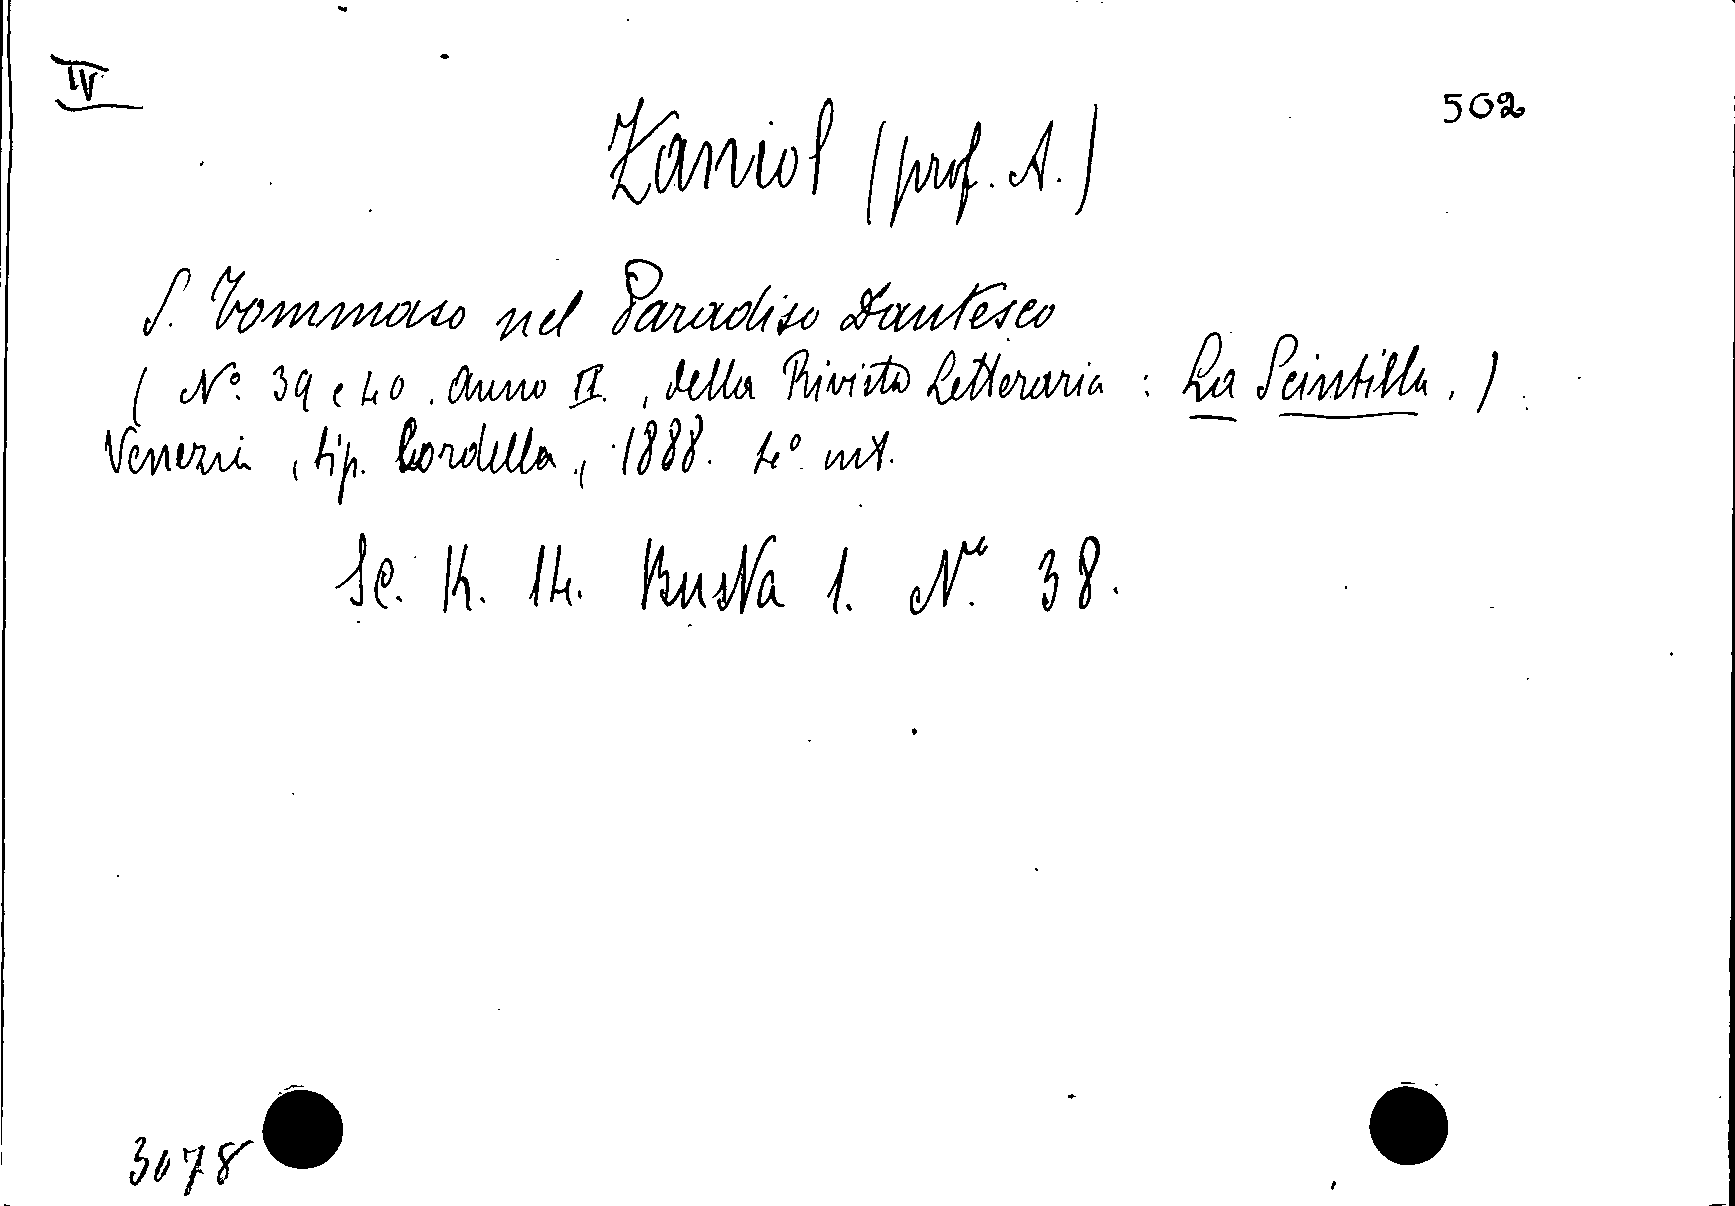 IV
502
Zaniol (prof. A.)
S. Tommaso nel Paradiso Dantesco
( N.º 39 e 40. Anno II., della Rivista Letteraria : La Scintilla. )
Venezia, tip. Cordella, 1888. 4º int.
Sc. K. 14. Busta 1. Nº 38.
3078